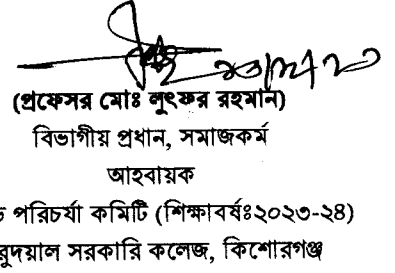 (প্রফেসর মোঃ লুৎফর রহমান)
বিভাগীয় প্রধান, সমাজকর্ম
আহবায়ক
পরিচর্যা কমিটি (শিক্ষাবর্ষঃ২০২৩-২৪)
সরকারি কলেজ, কিশোরগঞ্জ